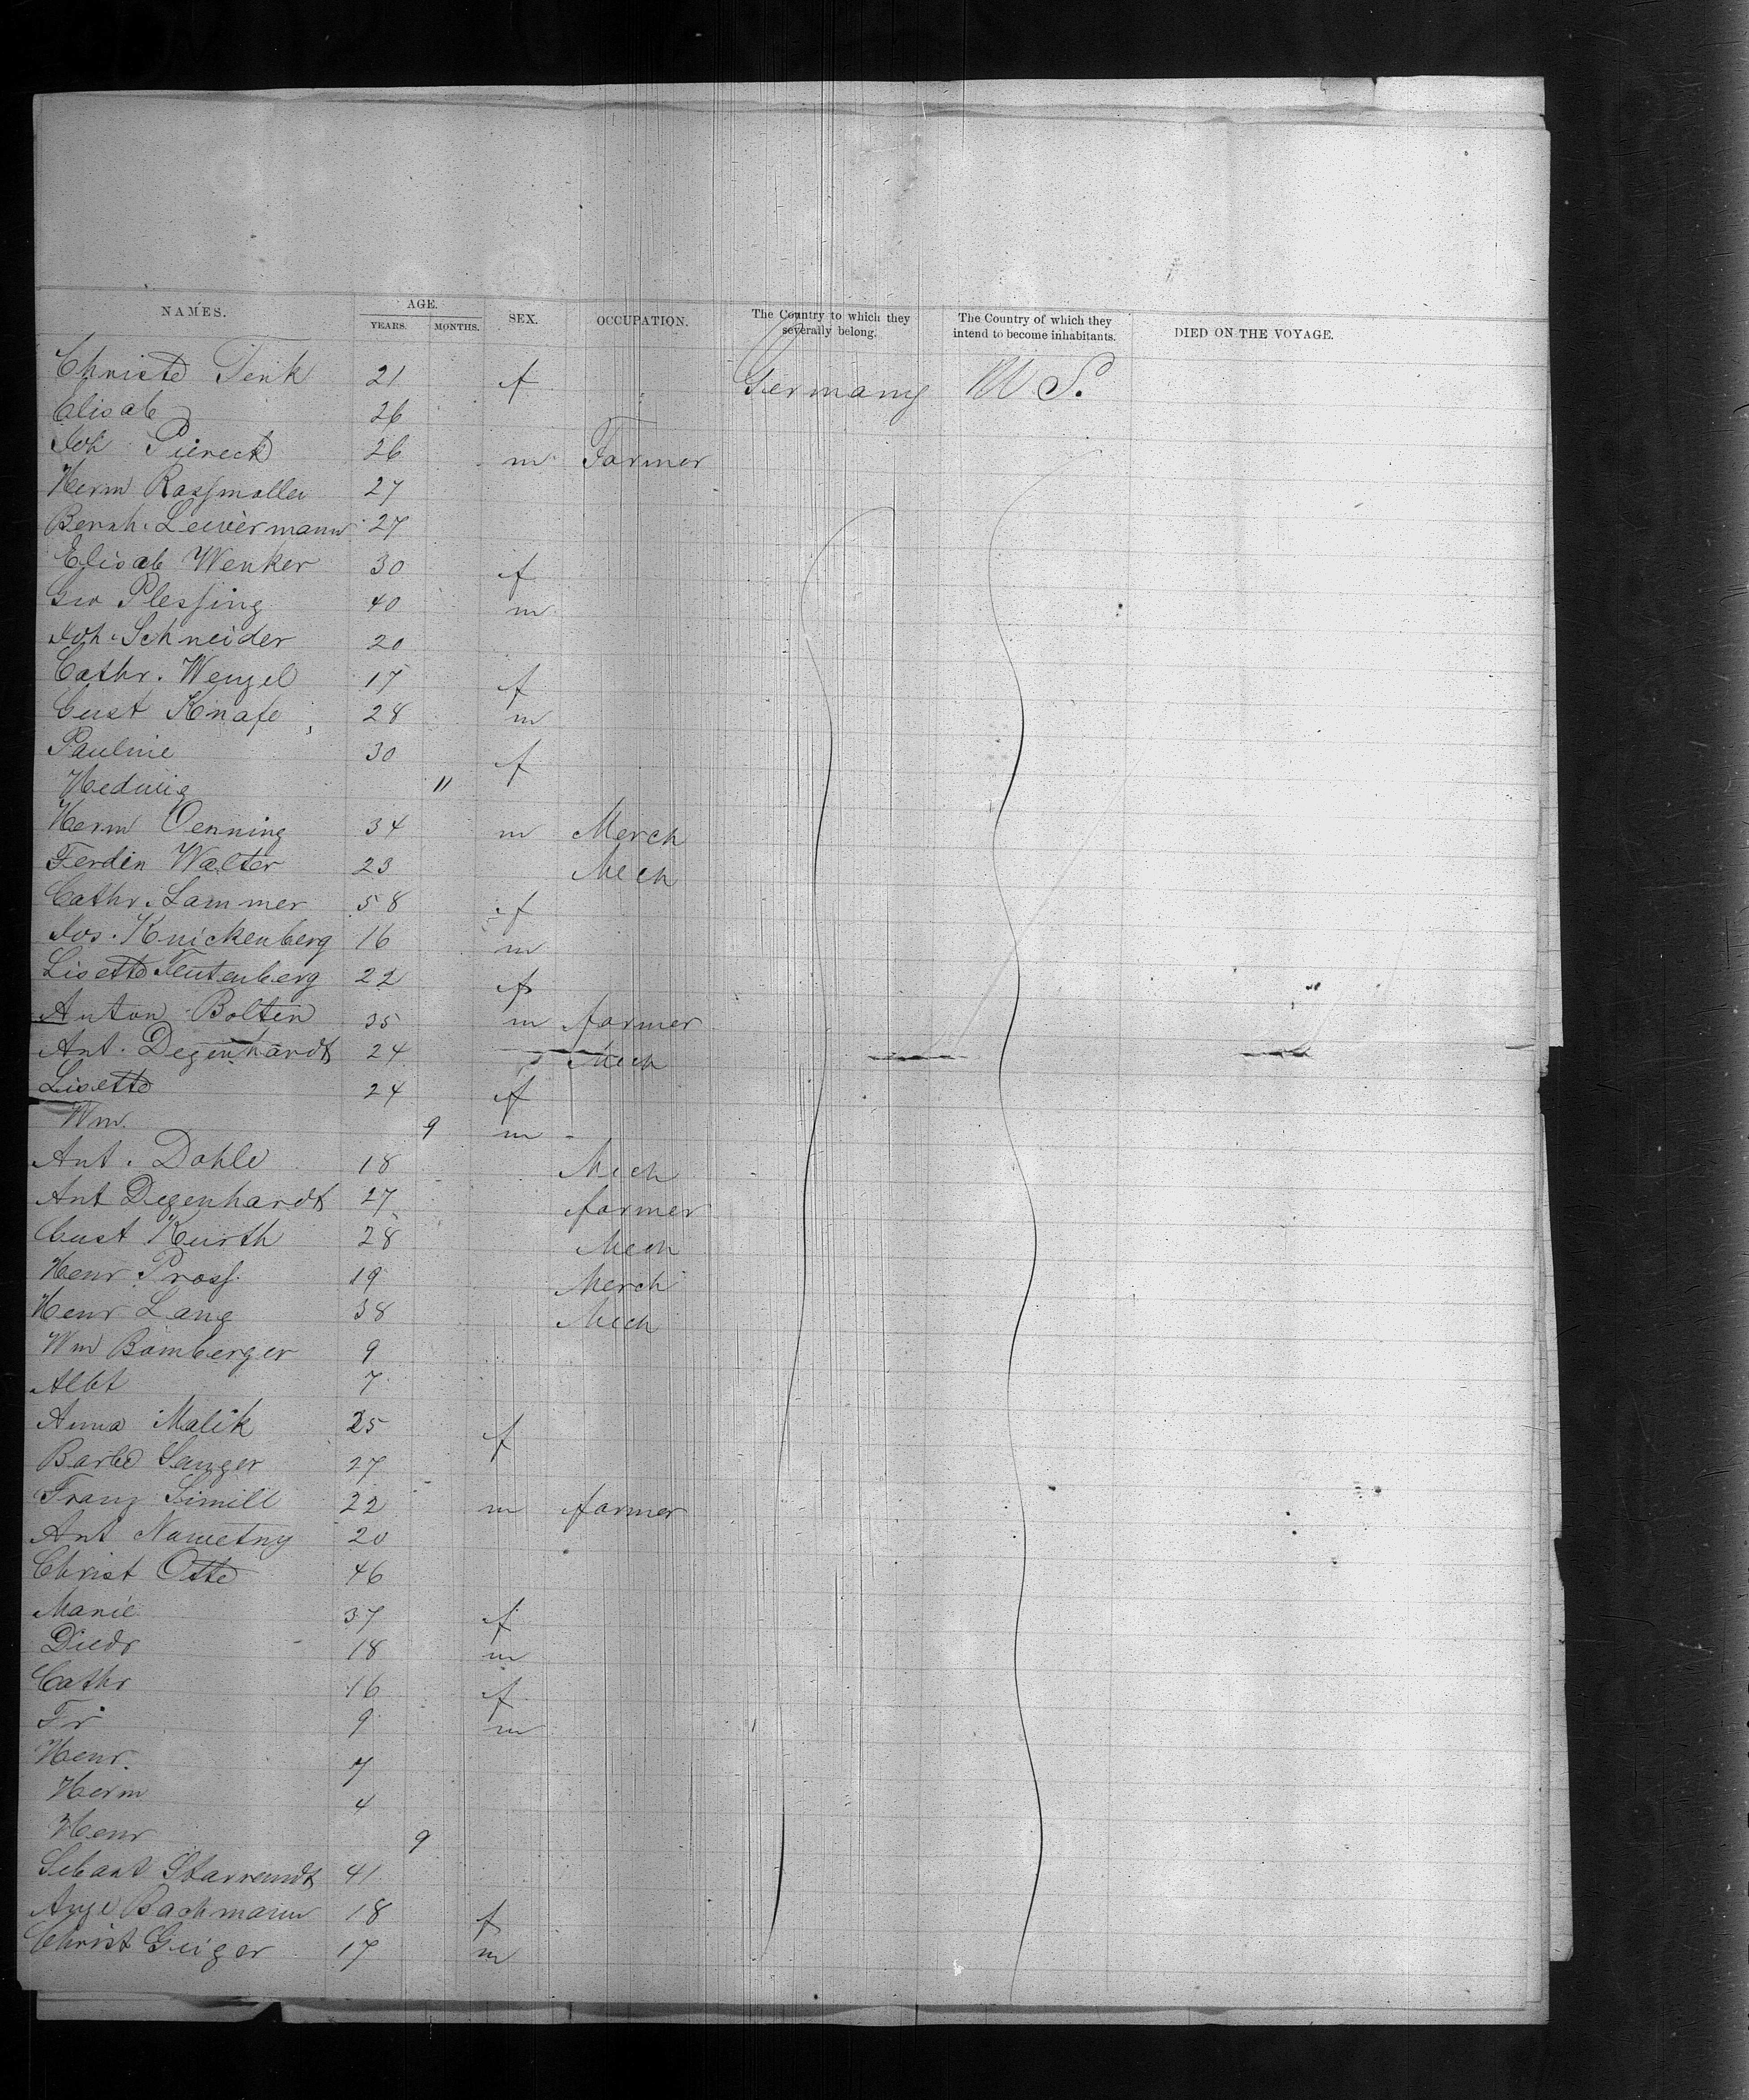 NAMES. AGE. YEARS. MONTHS. SEX. OCCUPATION. The Country to which they severally belong. The Country of which they intend to become inhabitants. DIED ON THE VOYAGE.
Christe Tenk 21 f Germany U S.
Elisab 26
Joh Piereck 26 m Farmer
Herm Rassmoller 27
Bernh. Leewermann 27
Elisab Wenker 30 f
Geo Plessing 40 m
Joh. Schneider 20
Cathr. Wenzel 17 f
Gust Knafe 28 m
Pauline 30 f
Hedwig 11
Herm Oenning 34 m Merch
Ferdin Walter 23 Mech
Cathr. Lammer 58 f
Jos. Knickenberg 16 m
Lisette Teutenberg 22 f
Anton Bolten 35 m farmer
Ant. Degenhardt 24 Mech
Lisette 24 f
Wm. 9 m
Ant. Dohle 18 Mech
Ant Degenhardt 27 farmer
Gust Kurth 28 Mech
Henr Pross. 19 Merch
Henr Lang 38 Mech
Wm Bamberger 9
Albt 7
Anna Malik 25 f
Barbe Sanger 27
Franz Simill 22 m farmer
Ant Nametny 20
Christ Otte 46
Marie 37 f
Diedr 18 m
Cathr 16 f
Fr 9 m
Henr. 7
Herm 4
Henr 9
Sebast 41
Auge Bachmann 18 f
Christ Geiger 17 m